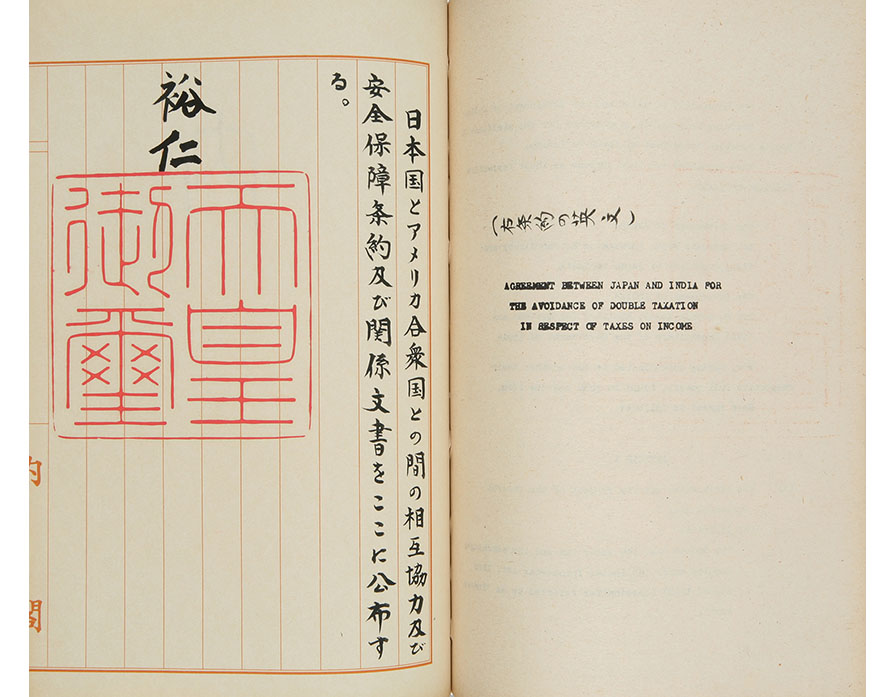 日本国とアメリカ合衆国との間の相互協力及び
安全保障条約及び関係文書をここに公布す
る。
裕仁
天皇
御璽
内閣
（右条約の英文）
AGREEMENT BETWEEN JAPAN AND INDIA FOR
THE AVOIDANCE OF DOUBLE TAXATION
IN RESPECT OF TAXES ON INCOME